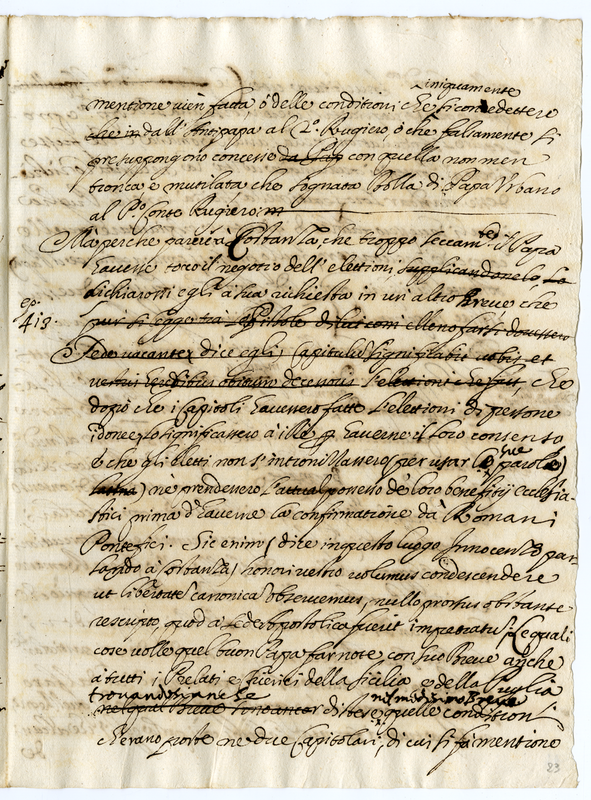 iniquamente
mentione vien fatta, ò delle conditioni che si concedettero
che in dall'Antipapa al 2.º Rugiero, ò che falsamente si
presuppongono concesse da Pap con quella non men
tronca e mutilata che sognata Bolla di Papa Urbano
al P.º Conte Rugiero: m
Mà perche pareva à Costanza, che troppo seccam.te il Papa
havesse toco il negotio dell'elettioni supplicandonelo, Lo
dichiarossi egli à sua richiesta in un altro Breve che
ep.
413.
pur si legge trà le Epistole di lui con elleno farsi dovessero
Sede vacante, dice egli, Capitulu significabit vobis et
vestris heredibus obitum decessoris l'elettione che
dopò che i Capitoli havessero fatte l'elettioni di persone
idonee, lo significassero à ille haverne il loro consenso
è che gli eletti non s'intronizassero (per usar le sue parole)
ne prendessero l'attual possesso de loro beneficij Ecclesia-
stici prima d'haverne la confirmatione da Romani
Pontefici. Sic enim (dice in questo luogo Innocenzo par-
lando à Costanza) honori vestro volumus condescendere
ut libertate canonica observemus, nullo prorsus obstante
rescripto, quod à Sede Apostolica fuerit impetratu. Le quali
cose volle quel buon Papa far note con suo Breve anche
à tutti i Prelati e chierici della Sicilia e della Puglia
trovandosene le nel medesimo Breve
nel qual Breve sono ancor distese quelle condizioni
ch'erano poste ne due Capitolari, di cui si fà mentione
23